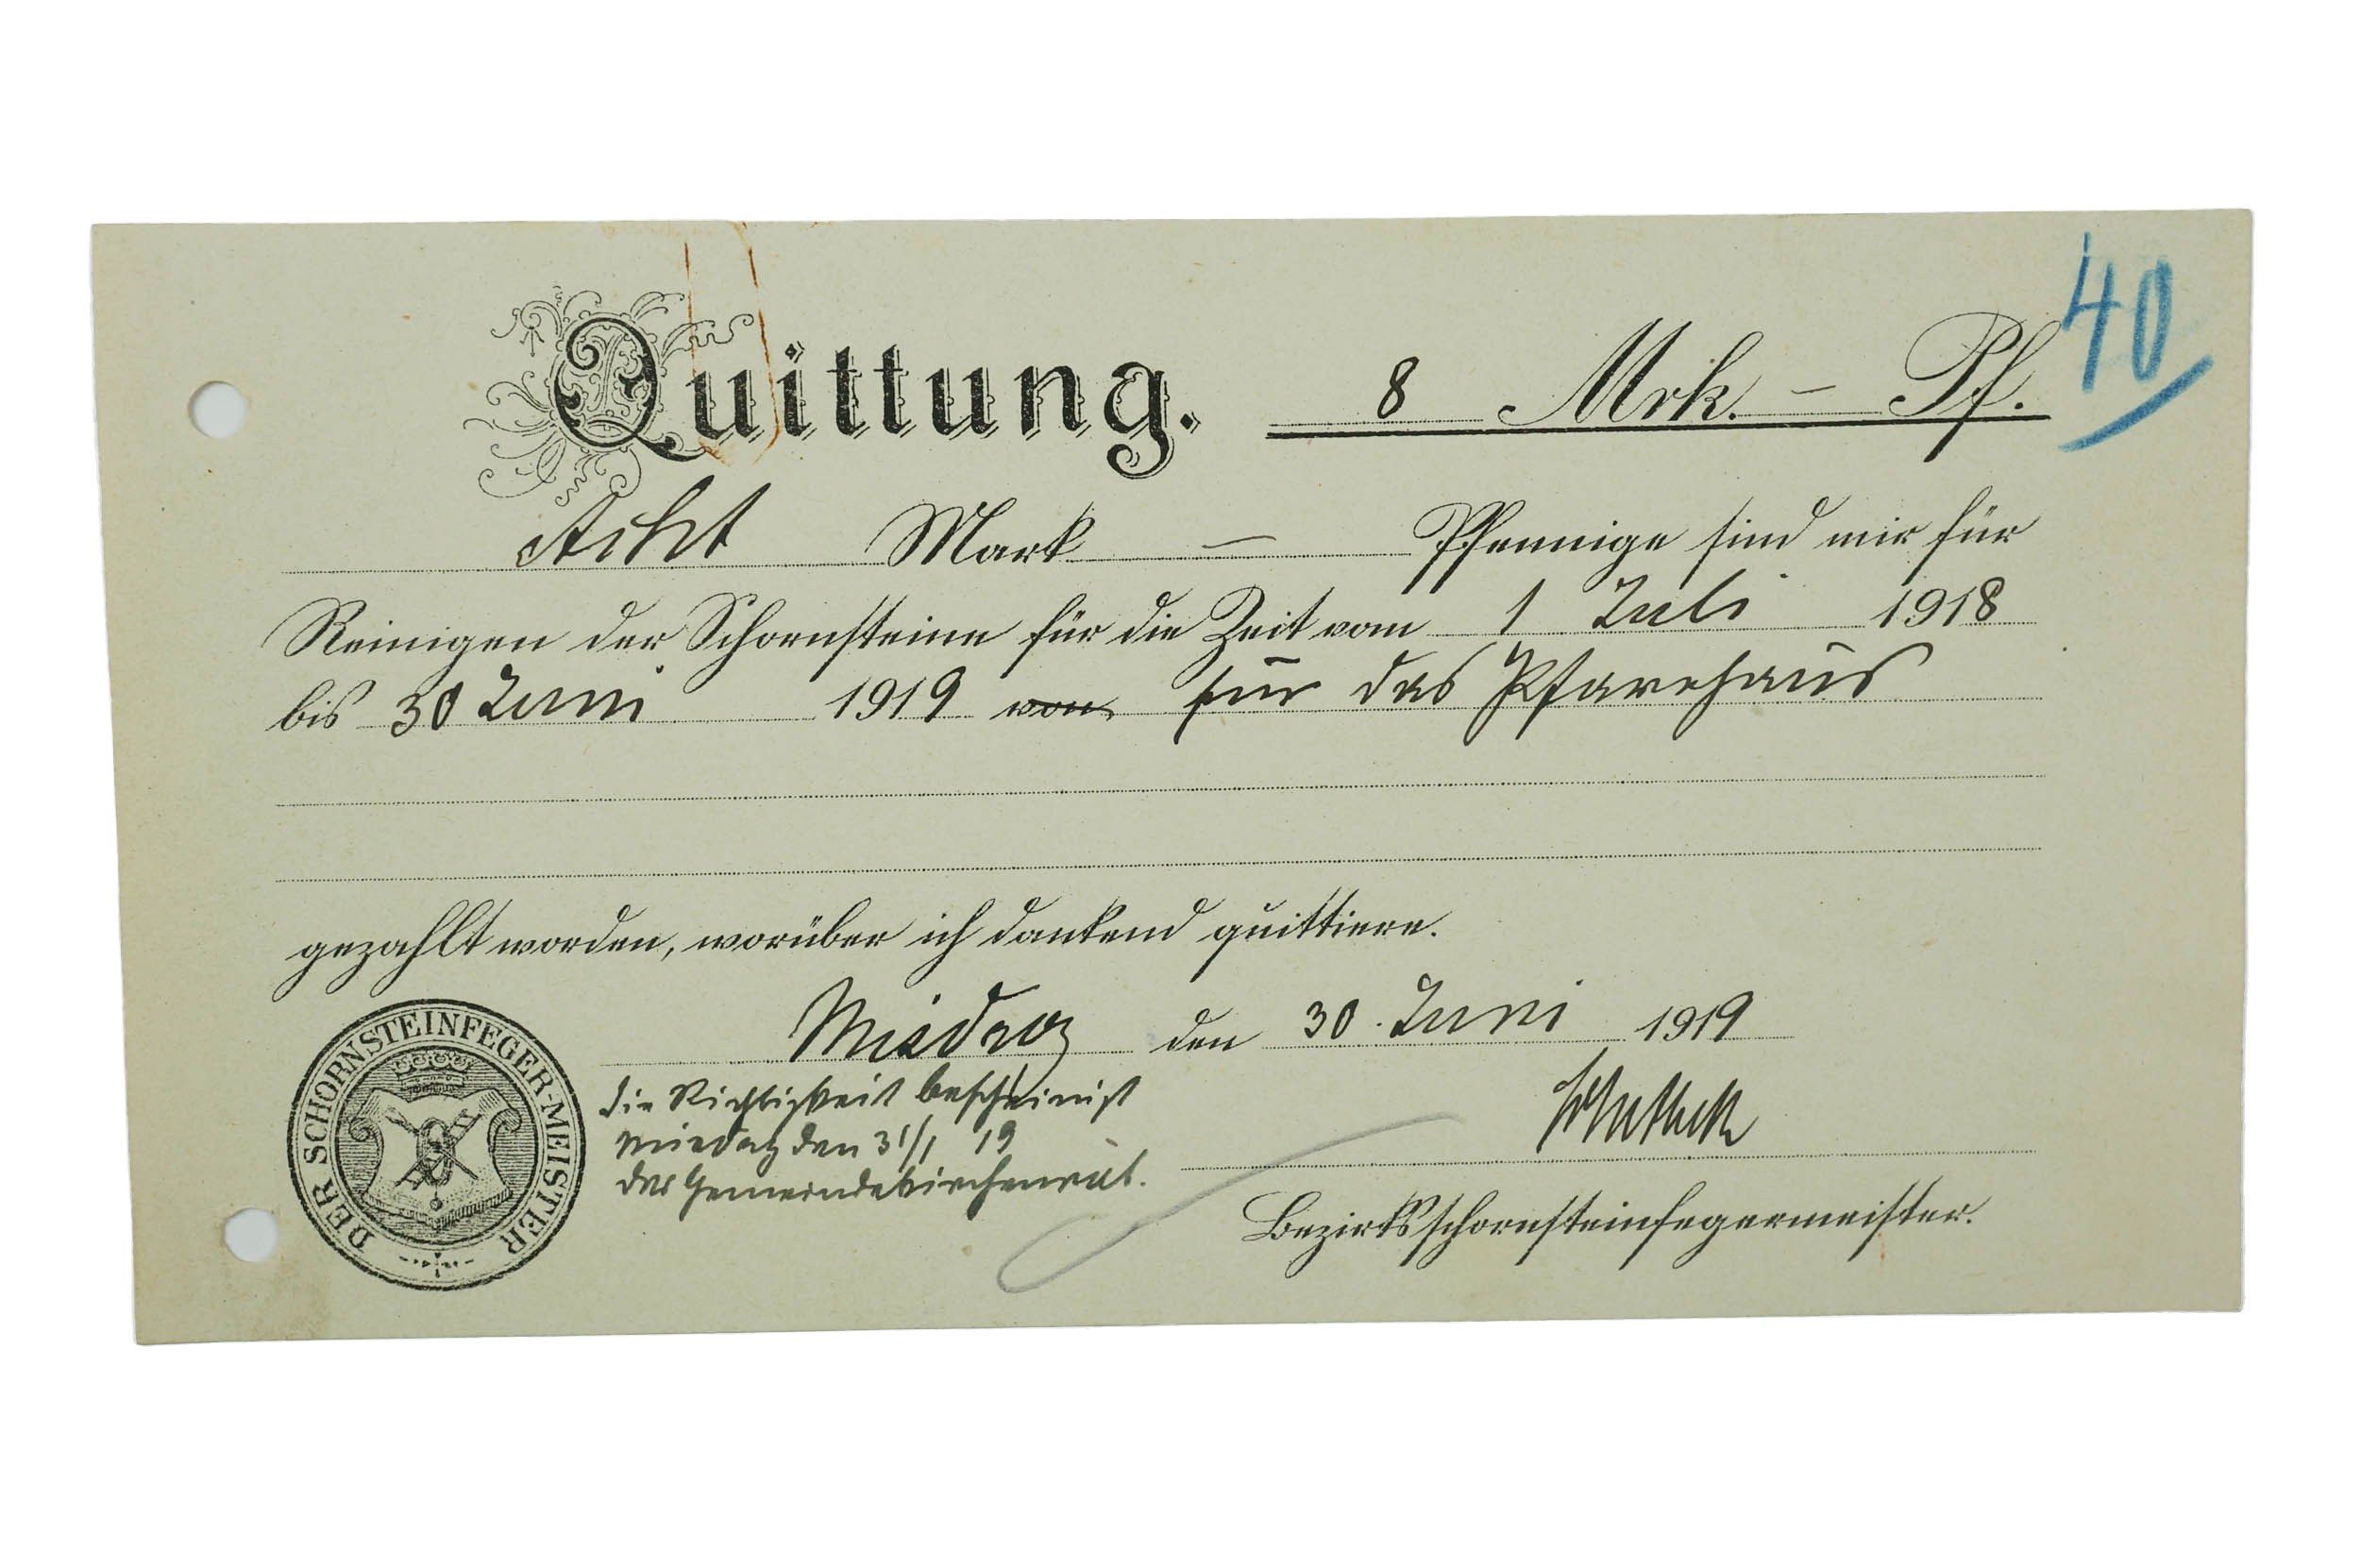 40
Quittung. 8 Mrk. – Pf.
Acht Mark – Pfennige sind mir für
Reinigen der Schornsteine für die Zeit vom 1 Juli 1918
bis 30 Juni 1919 von für das Pfarrhaus
gezahlt worden, worüber ich dankend quittiere.
den 30. Juni 1919
die Richtigkeit bescheinigt
den 31/1 19
der Gemeindekirchenrat.
Bezirksschornsteinfegermeister.
DER SCHORNSTEINFEGER-MEISTER